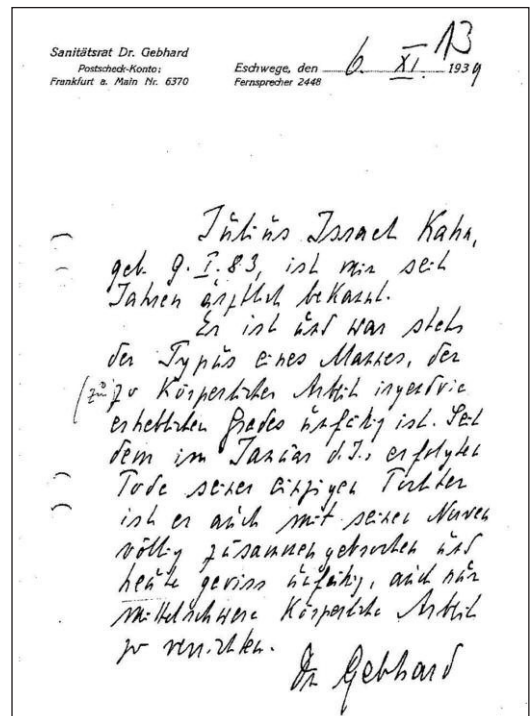 Sanitätsrat Dr. Gebhard
Postscheck-Konto:
Frankfurt a. Main Nr. 6370
13
Eschwege, den 6. XI. 1939
Fernsprecher 2448
Julius Israel Kahn,
geb. 9. I. 83, ist mir seit
Jahren ärztlich bekannt.
Er ist und war stets
der Typus eines Mannes, der
(zu) zu Körperlicher Arbeit irgendwie
erheblichen Grades unfähig ist. Seit
dem im Januar d. J. erfolgten
Tode seiner einzigen Tochter
ist er auch mit seinen Nerven
völlig zusammengebrochen und
heute gewiss unfähig, auch nur
mittelschwere Körperliche Arbeit
zu verrichten.
Dr Gebhard